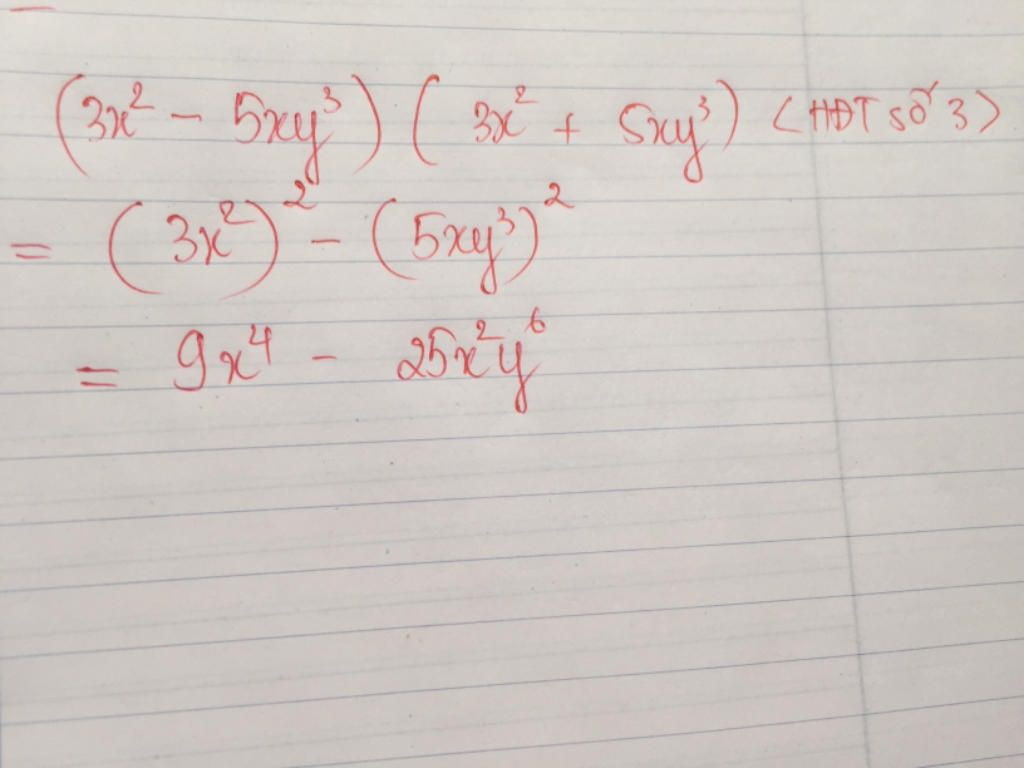 (3x² - 5xy³) (3x² + 5xy³) <HĐT số 3>
= (3x²)² - (5xy³)²
= 9x⁴ - 25x²y⁶